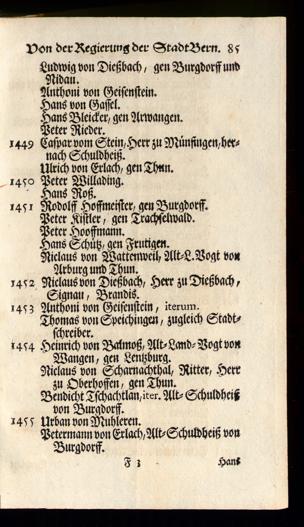 Von der Regierung der Stadt Bern. 85
Ludwig von Dießbach, gen Burgdorff und
Nidau.
Anthoni von Geisenstein.
Hans von Gassel.
Hans Bleicker, gen Arwangen.
Peter Rieder.
1449 Caspar vom Stein, Herr zu Münsingen, her-
nach Schuldheiß.
Ulrich von Erlach, gen Thun.
1450 Peter Willading.
Hans Roß.
1451 Rodolff Hoffmeister, gen Burgdorff.
Peter Kistler, gen Trachselwald.
Peter Hooffmann.
Hans Schütz, gen Frutigen.
Niclaus von Wattenweil, Alt-L. Vogt von
Arburg und Thun.
1452 Niclaus von Dießbach, Herr zu Dießbach,
Signau, Brandis.
1453 Anthoni von Geisenstein, iterum.
Thomas von Speichingen, zugleich Stadt-
schreiber.
1454 Heinrich von Balmoß, Alt-Land-Vogt von
Wangen, gen Lentzburg.
Niclaus von Scharnachthal, Ritter, Herr
zu Oberhoffen, gen Thun.
Bendicht Tschachtlan, iter. Alt-Schuldheiß
von Burgdorff.
1455 Urban von Muhleren.
Petermann von Erlach, Alt-Schuldheiß von
Burgdorff.
F 3 Hans